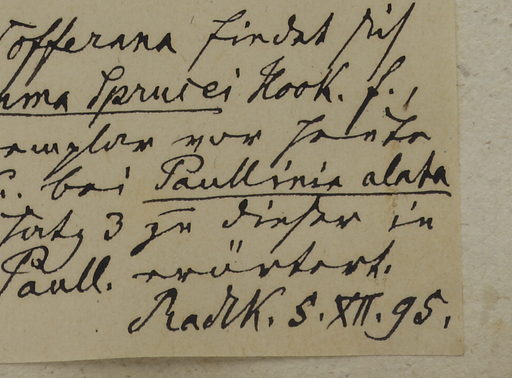 Tofferana findet sich
mma Sprucei Hook. f.,
emplar vor heute
bei Paullinia alata
Satz 3 zu dieser in
Paull. erörtert.
Radlk. 5. XII. 95.